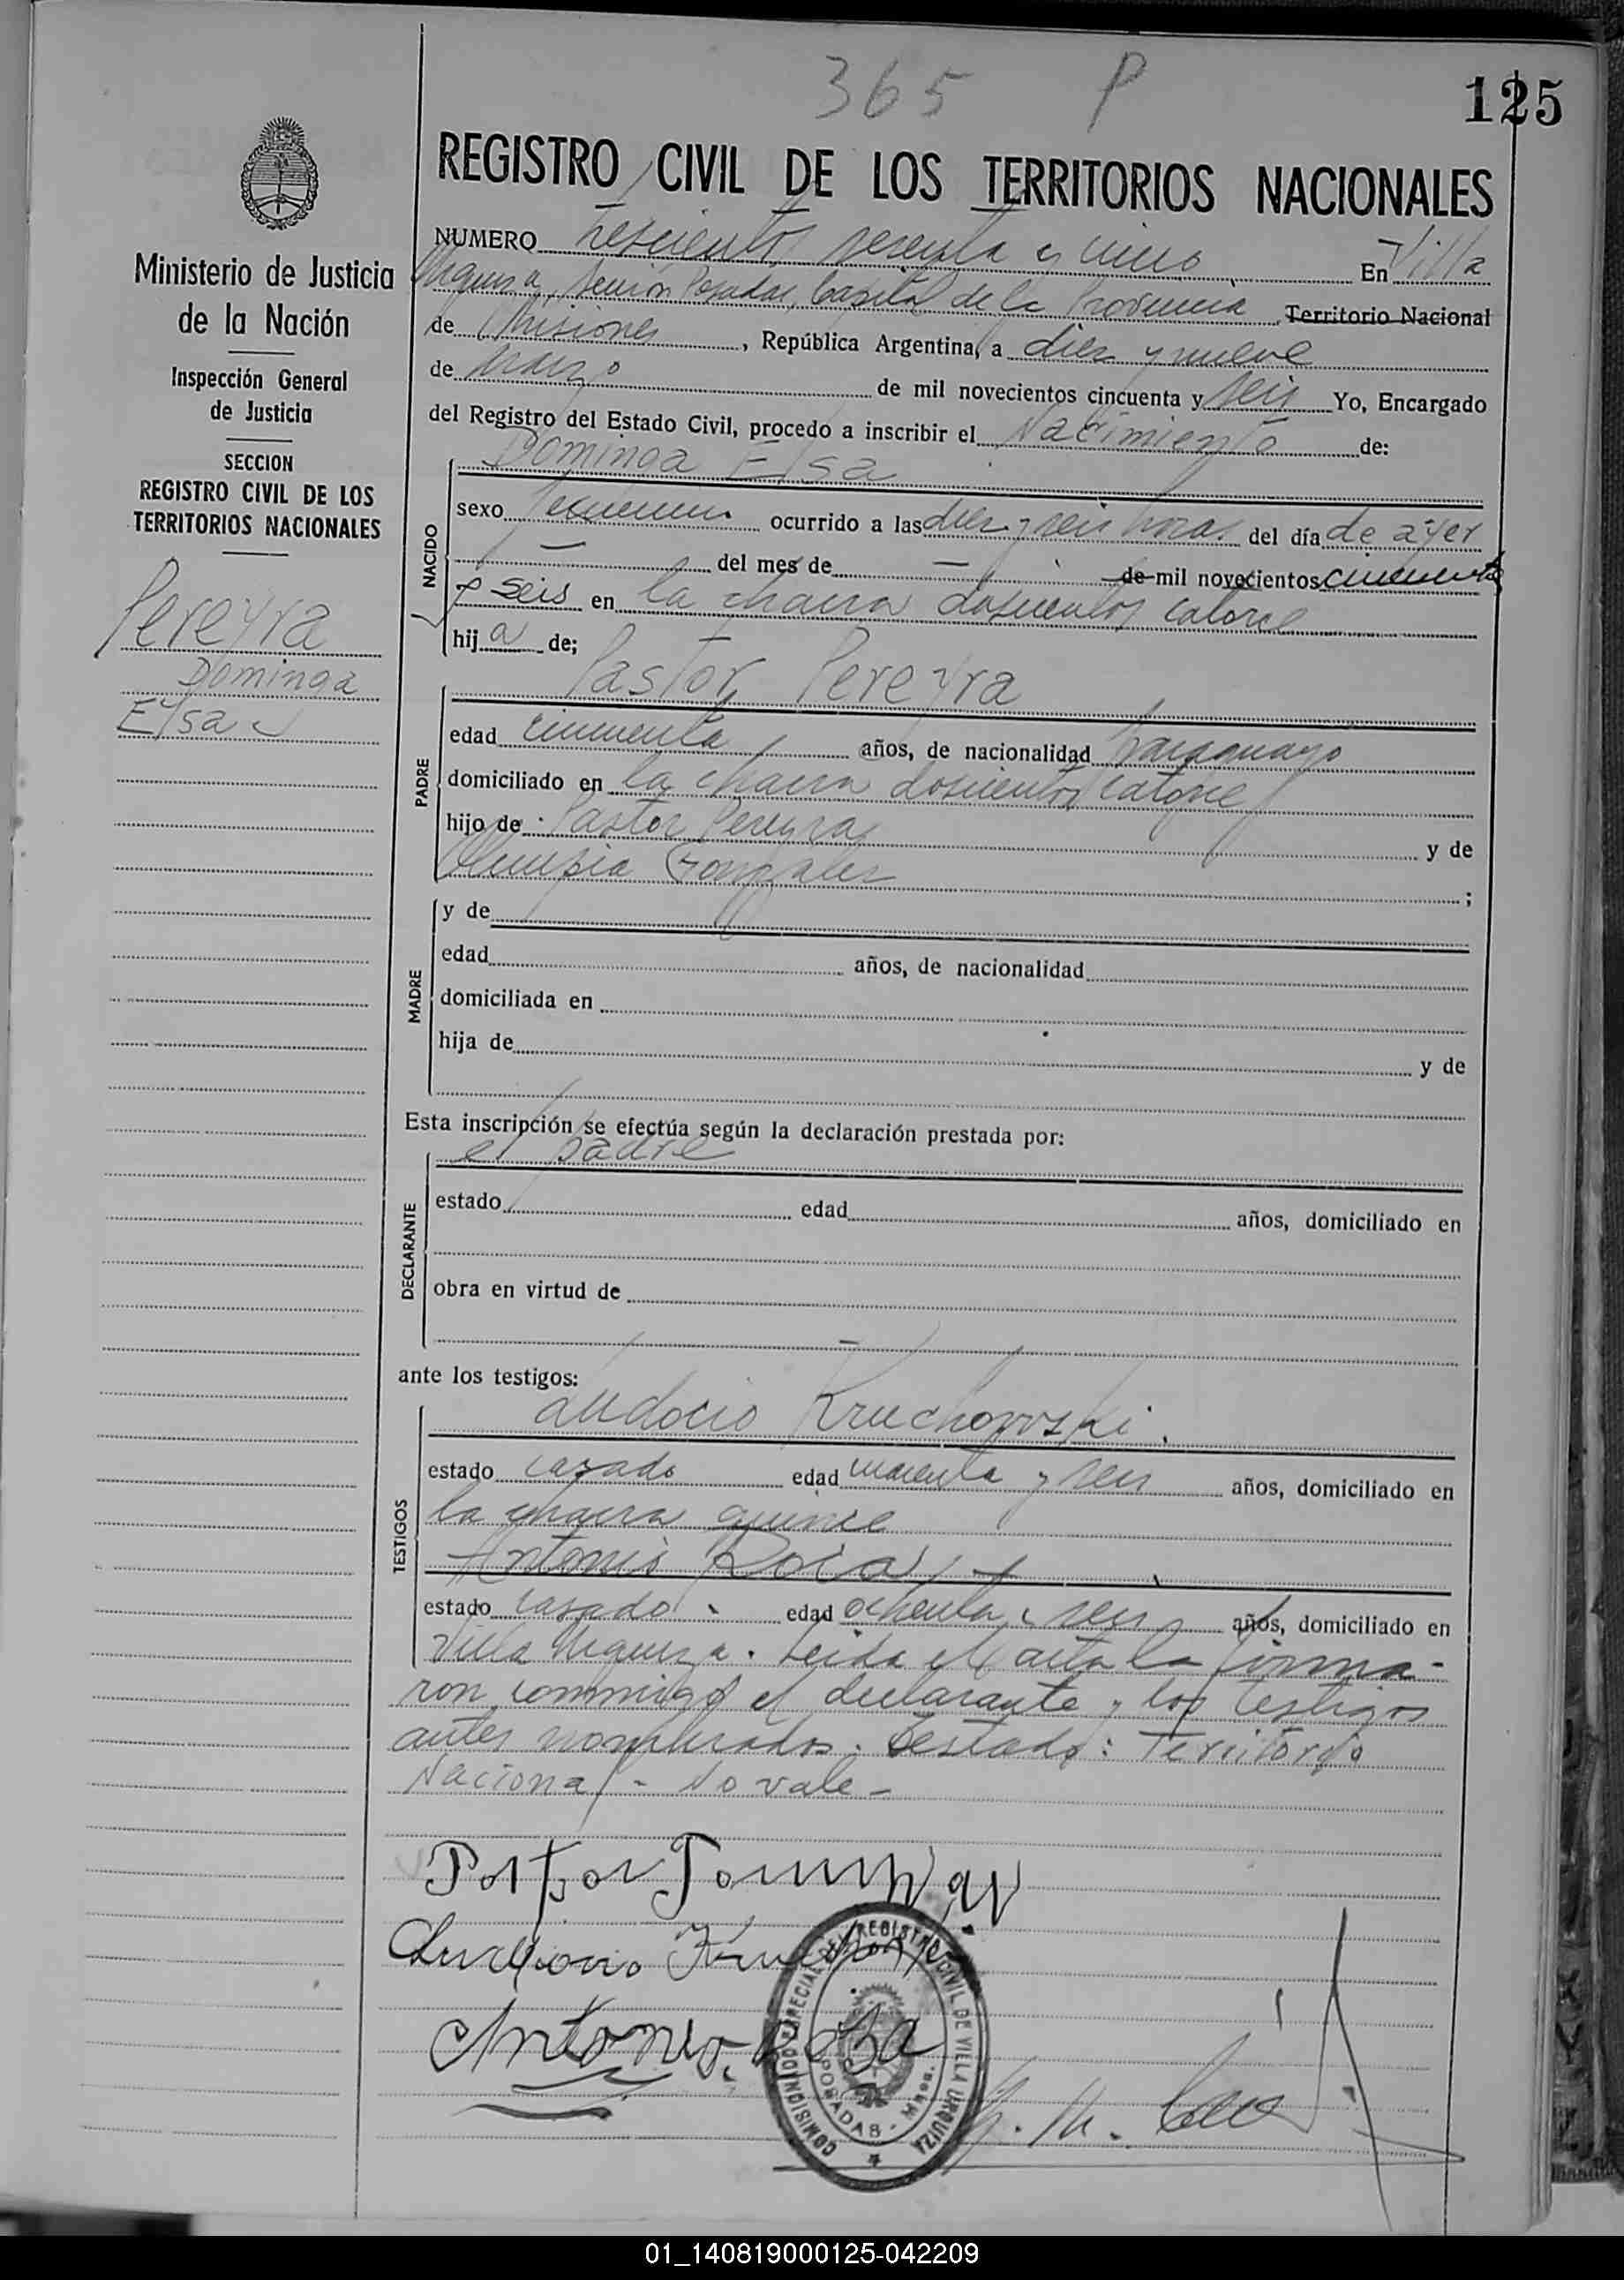 365 P
125
REGISTRO CIVIL DE LOS TERRITORIOS NACIONALES
Ministerio de Justicia
de la Nación
Inspección General
de Justicia
SECCION
REGISTRO CIVIL DE LOS
TERRITORIOS NACIONALES
Pereyra
Dominga
Elsa
NUMERO Trescientos sesenta y cinco En Villa
Urquiza, Sección Posadas, Capital de la Provincia Territorio Nacional
de Misiones, República Argentina, a diez y nueve
de marzo de mil novecientos cincuenta y seis Yo, Encargado
del Registro del Estado Civil, procedo a inscribir el Nacimiento de:
NACIDO
Dominga Elsa
sexo femenino ocurrido a las diez y seis horas del día de ayer
— del mes de — de mil novecientos cincuenta
y seis en la chacra doscientos catorce
hija de;
PADRE
Pastor Pereyra
edad cincuenta años, de nacionalidad paraguayo
domiciliado en la chacra doscientos catorce
hijo de Pastor Pereyra y de
Olimpia Gonzalez ;
MADRE
y de
edad años, de nacionalidad
domiciliada en
hija de y de
Esta inscripción se efectúa según la declaración prestada por:
DECLARANTE
el padre
estado edad años, domiciliado en
obra en virtud de
—
ante los testigos:
TESTIGOS
Kruchowski.
estado casado edad cuarenta y seis años, domiciliado en
la chacra quince
Antonio
estado casado edad ochenta y seis años, domiciliado en
Villa Urquiza. Leida el acta la firma-
ron conmigo el declarante y los testigos
antes nombrados. Testado: Territorio
Nacional - No vale -
Antonio
COMISIONADO ESPECIAL DEL REGISTRO CIVIL DE VILLA URQUIZA
POSADAS - Mnes.
01_140819000125-042209